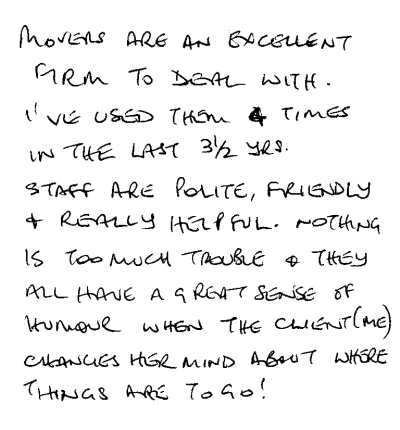 MOVERS ARE AN EXCELLENT
FIRM TO DEAL WITH.
I'VE USED THEM 4 TIMES
IN THE LAST 3½ YRS.
STAFF ARE POLITE, FRIENDLY
& REALLY HELPFUL. NOTHING
IS TOO MUCH TROUBLE & THEY
ALL HAVE A GREAT SENSE OF
HUMOUR WHEN THE CLIENT (ME)
CHANGES HER MIND ABOUT WHERE
THINGS ARE TO GO!